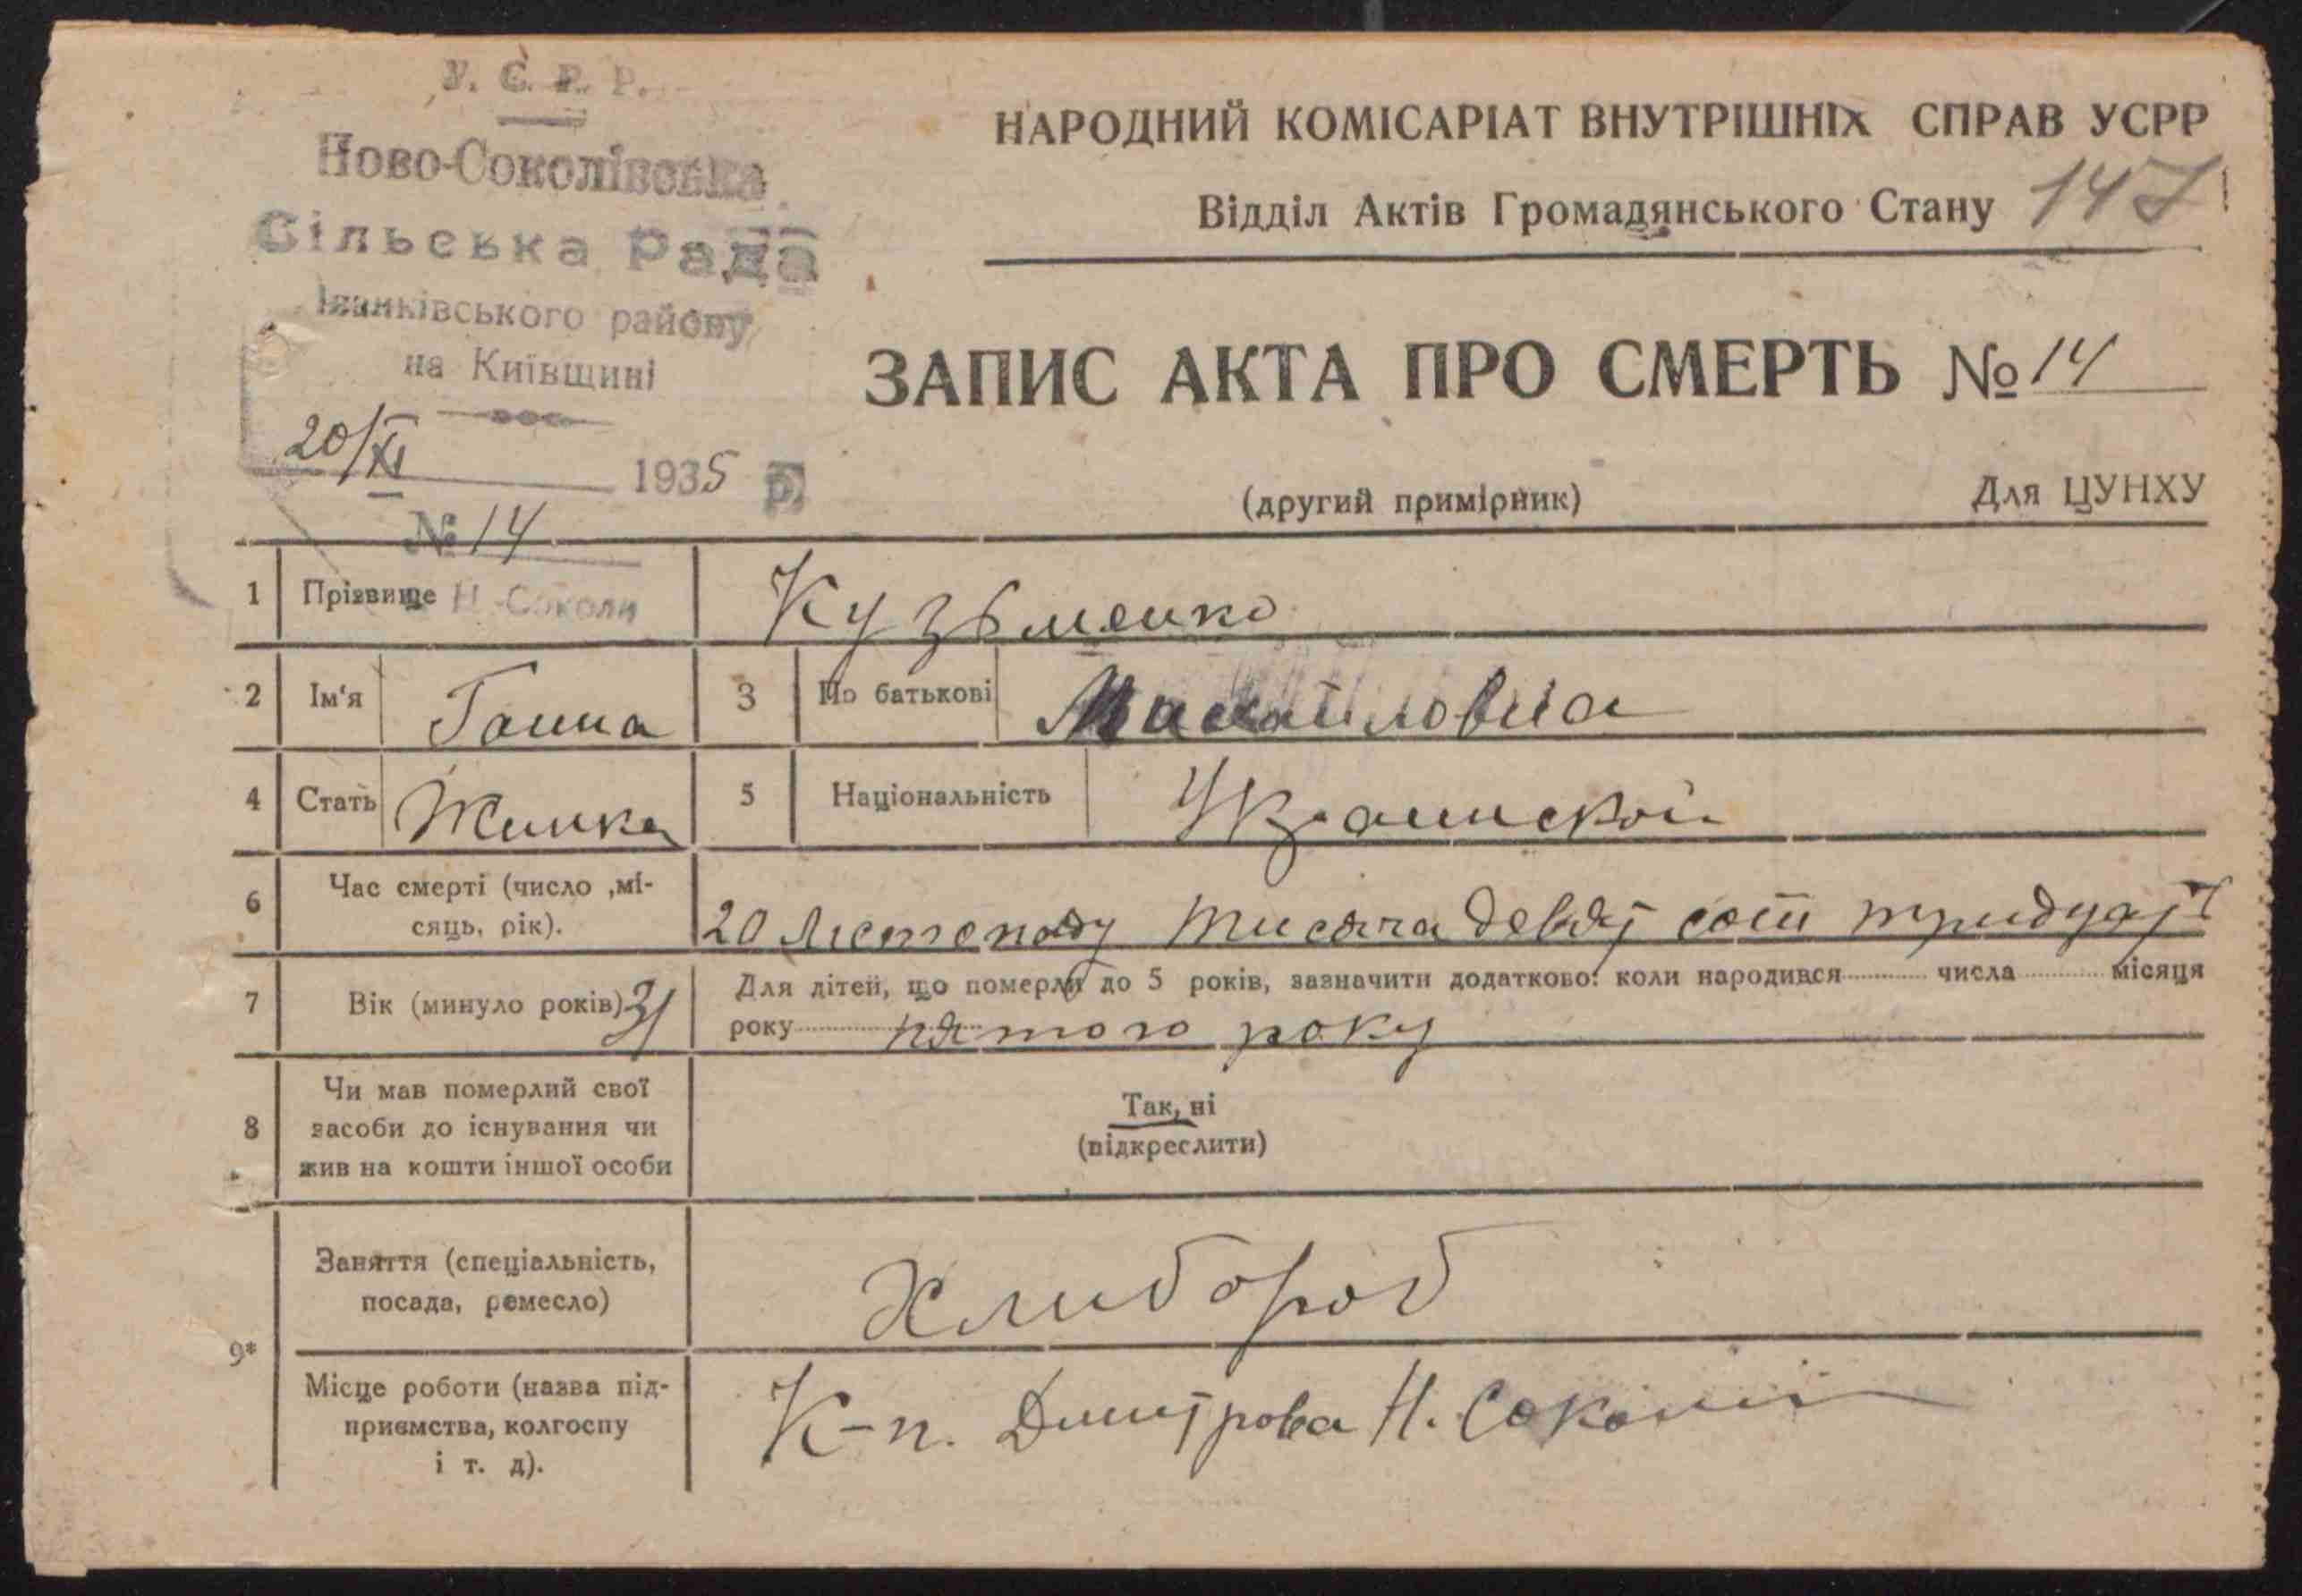 У. С. Р. Р.
Ново-Соколівська
Сільська Рада
Іванківського району
на Київщині
20/XI 1935 р.
№ 14
Н-Соколи
НАРОДНИЙ КОМІСАРІАТ ВНУТРІШНІХ СПРАВ УСРР
Відділ Актів Громадянського Стану 147
ЗАПИС АКТА ПРО СМЕРТЬ № 14
(другий примірник) Для ЦУНХУ
1 Прізвище Кузьменко
2 Ім‘я Ганна 3 По батькові Михайловна
4 Стать Жинка 5 Національність Украинской
6 Час смерті (число ,мі-
сяць, рік). 20 Листопаду тисяча девят сот тридцать
7 Вік (минуло років) 31 Для дітей, що померли до 5 років, зазначити додатково: коли народився числа місяця
року пятого року
8 Чи мав померлий свої
засоби до існування чи
жив на кошти іншої особи
Так, ні
(підкреслити)
9*
Заняття (спеціальність,
посада, ремесло) Хлибороб
Місце роботи (назва під-
приємства, колгоспу
і т. д). К-п. Димтрова Н. Соколи